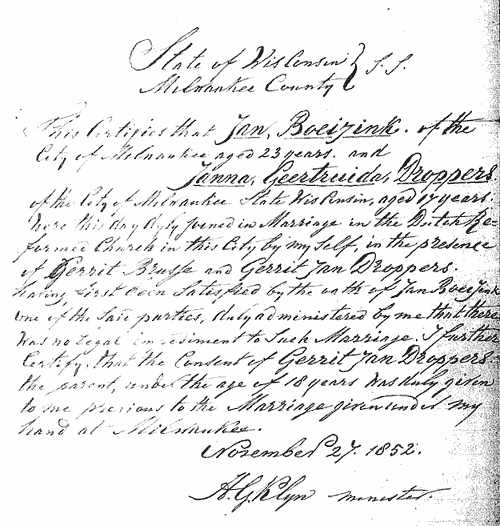 State of Wisconsin } S.S.
Milwaukee County
This Certifies that Jan, Boeijink. of the
City of Milwaukee aged 23 years. and
Janna, Geertruida, Droppers
of the City of Milwaukee State Wisconsin, aged 17 years.
were this day duly joined in Marriage in the Dutch Re-
formed Church in this City by my self, in the presence
of Gerrit Brusse and Gerrit Jan Droppers.
having first been Satisfied by the oath of Jan Boeijink
one of the said parties, duly administered by me that there
was no legal impediment to Such Marriage. I further
Certify, that the Consent of Gerrit Jan Droppers
the parent, under the age of 18 years was duly given
to me previous to the Marriage given under my
hand at Milwaukee.
November 27. 1852.
A.G. Klyn minister.